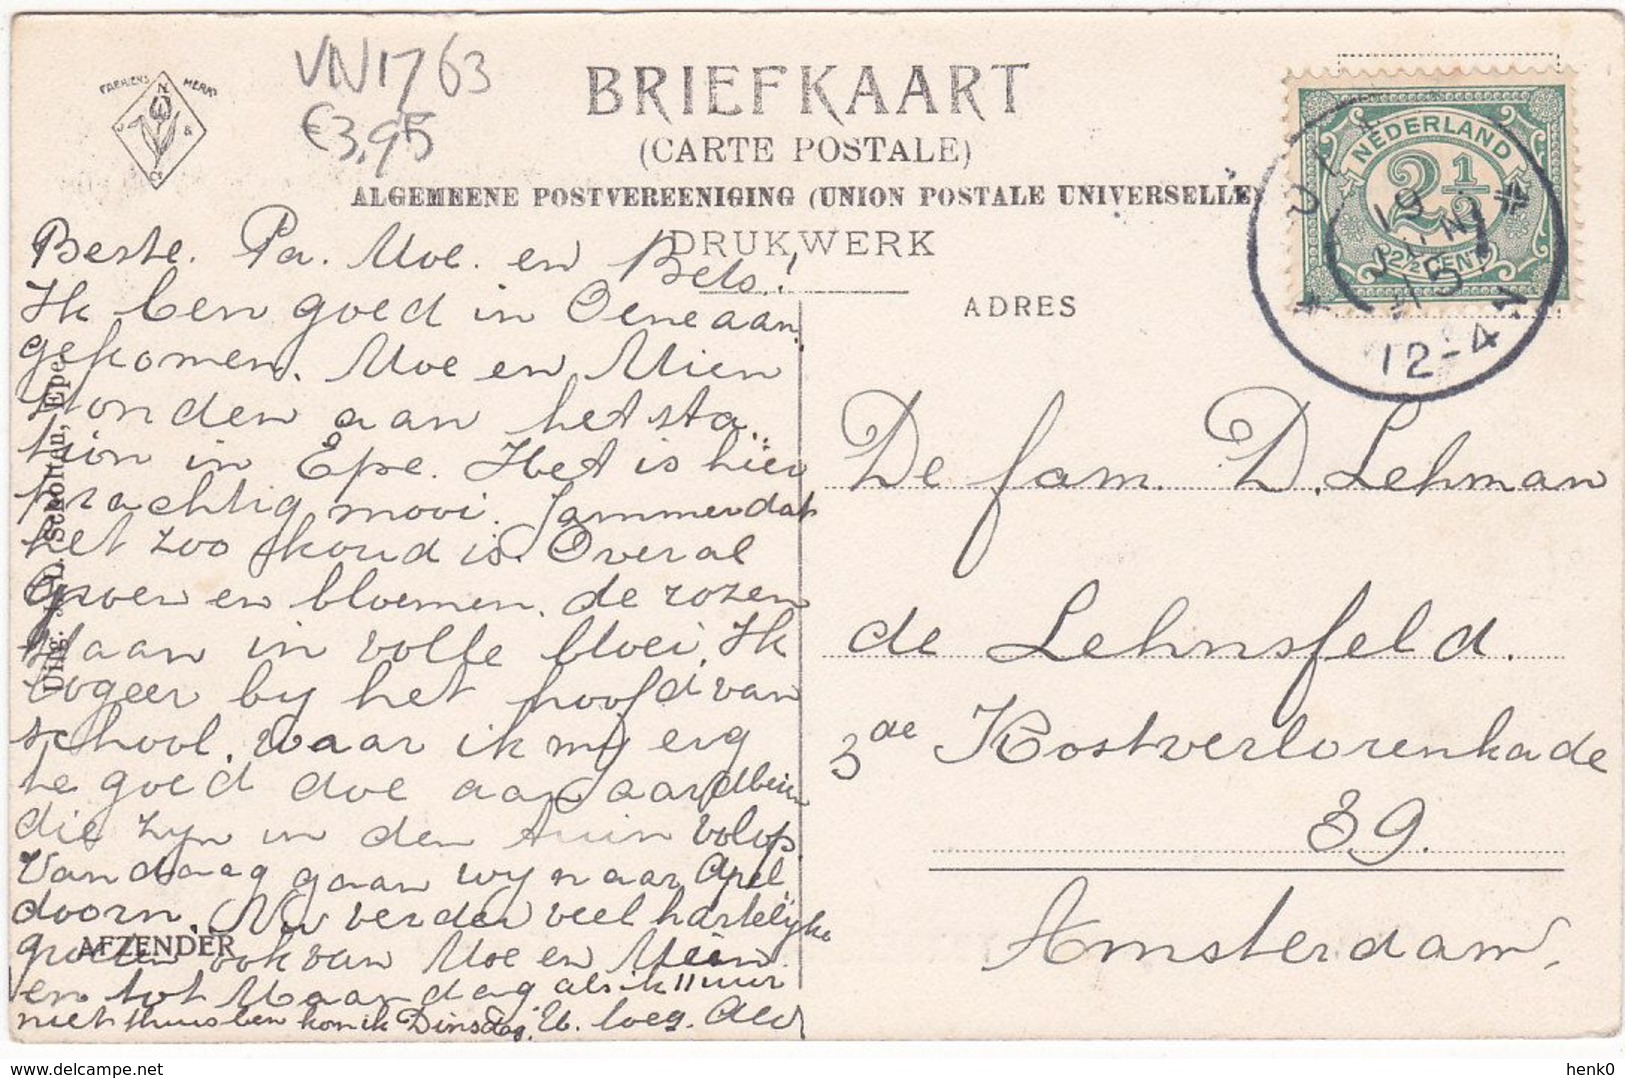 VN1763
€3,95
FABRIEKS MERK
N
J &
Co
BRIEFKAART
(CARTE POSTALE)
ALGEMEENE POSTVEREENIGING (UNION POSTALE UNIVERSELLE)
DRUKWERK
ADRES
NEDERLAND
2½
2½ CENT
19 JUN
15
12-4 N
Beste. Pa. Moe. en Bets!
Ik ben goed in Oene aan
gekomen. Moe en Mien
stonden aan het sta..
tion in Epe. Het is hier
prachtig mooi. Jammer dat
het zoo koud is. Overal
groen en bloemen. de rozen
staan in volle bloei. Ik
logeer by het hoofd van
school. waar ik my erg
te goed doe aan aardbein
die zyn in den tuin volop
Vandaag gaan wy naar Apel,
doorn. Nu verder veel hartelijke
groeten ook van Moe en Mien
en tot Maandag als ik 11 uur
niet thuis ben kom ik Dinsdag. U. loeg.
Uitg. Scholten, Epe.
AFZENDER
De fam. D. Lehman
de Lehnsfeld.
3de Kostverlorenkade
39.
Amsterdam.
henk0